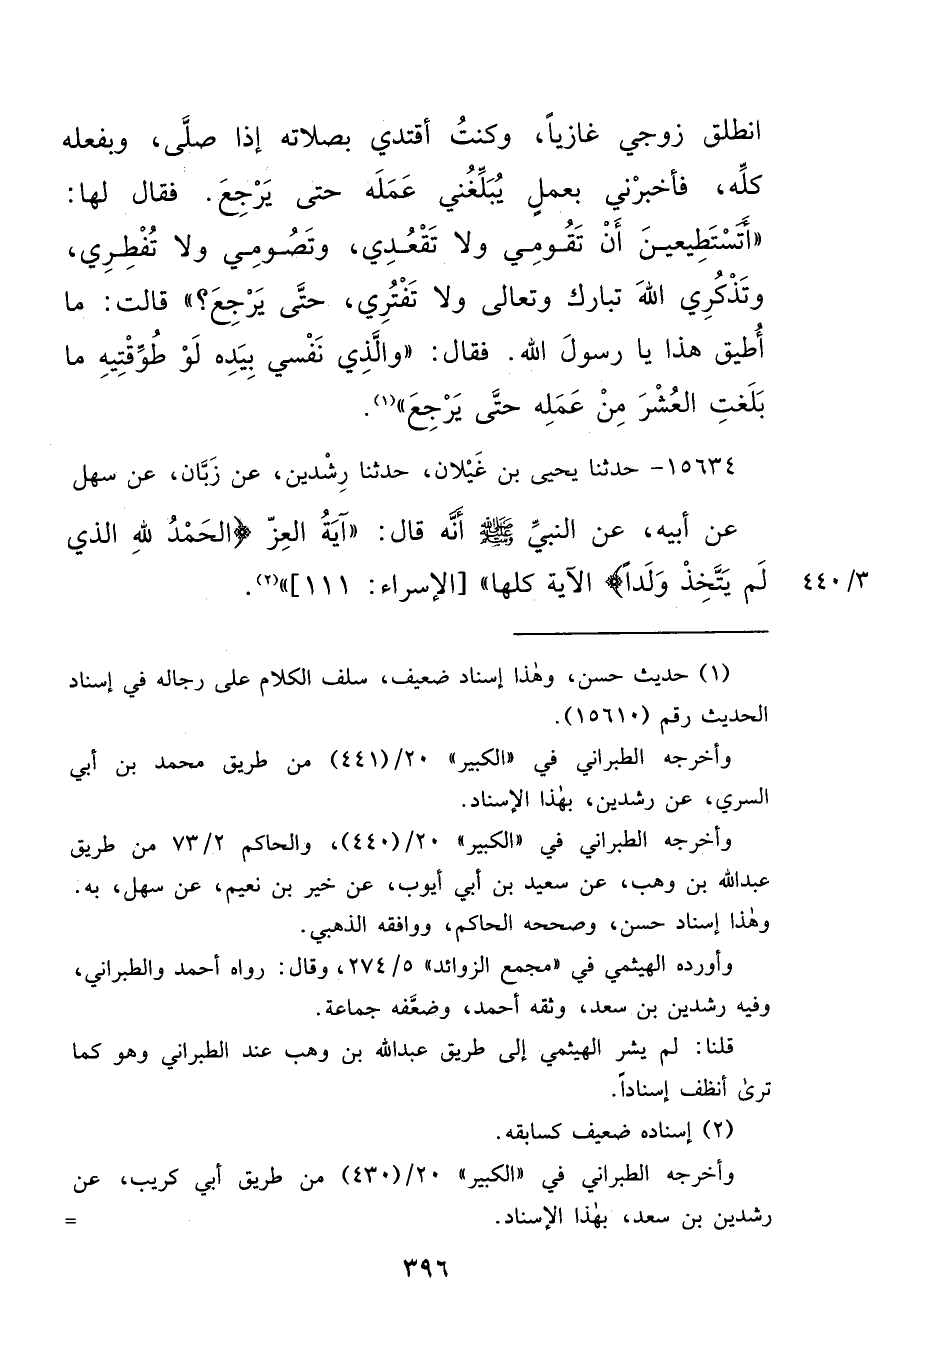 انطلق زوجي غازياً، وكنتُ أقتدي بصلاته إذا صلَّى، وبفعله
كلِّه، فأخبرْني بعملٍ يُبَلِّغُني عَمَلَه حتى يَرْجِعَ. فقال لها:
«أَتَسْتَطِيعينَ أَنْ تَقُومي ولا تَقْعُدي، وتَصُومي ولا تُفْطِري،
وتَذْكُرِي اللهَ تبارك وتعالى ولا تَفْتُرِي، حتَّى يَرْجِعَ؟» قالت: ما
أُطيق هذا يا رسولَ الله. فقال: «والَّذِي نَفْسي بِيَدِه لَوْ طُوِّقْتِيهِ ما
بَلَغتِ العُشْرَ مِنْ عَمَلِه حتَّى يَرْجِعَ»(١).
١٥٦٣٤- حدثنا يحيى بن غَيْلان، حدثنا رِشْدين، عن زَبَّان، عن سهل
عن أبيه، عن النبيِّ ﷺ أنَّه قال: «آيَةُ العِزِّ ﴿الحَمْدُ للهِ الذي
لَم يَتَّخِذْ وَلَداً﴾ الآية كلها» [الإسراء: ١١١]»(٢).
٤٤٠/٣
(١) حديث حسن، وهٰذا إسناد ضعيف، سلف الكلام على رجاله في إسناد
الحديث رقم (١٥٦١٠).
وأخرجه الطبراني في «الكبير» ٢٠/(٤٤١) من طريق محمد بن أبي
السري، عن رشدين، بهٰذا الإسناد.
وأخرجه الطبراني في «الكبير» ٢٠/(٤٤٠)، والحاكم ٧٣/٢ من طريق
عبدالله بن وهب، عن سعيد بن أبي أيوب، عن خير بن نعيم، عن سهل، به.
وهٰذا إسناد حسن، وصححه الحاكم، ووافقه الذهبي.
وأورده الهيثمي في «مجمع الزوائد» ٢٧٤/٥، وقال: رواه أحمد والطبراني،
وفيه رشدين بن سعد، وثقه أحمد، وضعَّفه جماعة.
قلنا: لم يشر الهيثمي إلى طريق عبدالله بن وهب عند الطبراني وهو كما
ترىٰ أنظف إسناداً.
(٢) إسناده ضعيف كسابقه.
وأخرجه الطبراني في «الكبير» ٢٠/(٤٣٠) من طريق أبي كريب، عن
رشدين بن سعد، بهٰذا الإسناد. =
٣٩٦